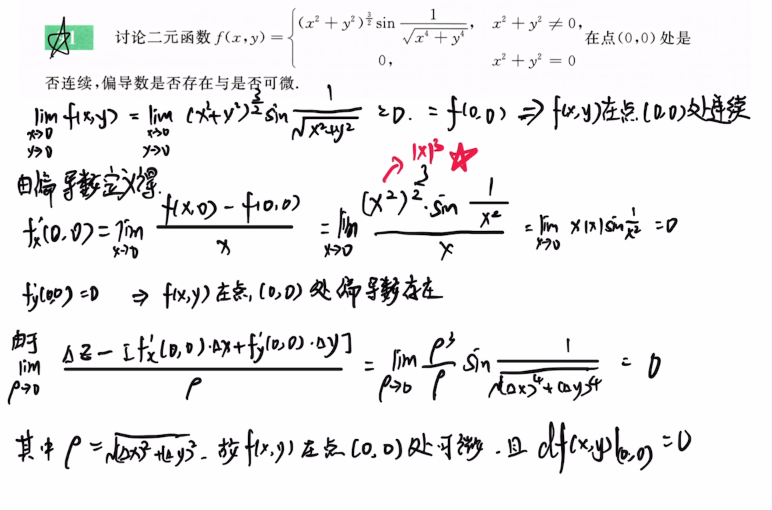 1 讨论二元函数 f(x,y) = { (x² + y²)^{3/2} sin 1/√(x⁴ + y⁴), x² + y² ≠ 0, 0, x² + y² = 0 在点(0,0)处是
否连续,偏导数是否存在与是否可微.
lim_{x→0 y→0} f(x,y) = lim_{x→0 y→0} (x²+y²)^{3/2} sin 1/√(x²+y²) = 0. = f(0,0) ⇒ f(x,y)在点(0,0)处连续
|x|³
由偏导数定义得.
f'x(0,0) = lim_{x→0} (f(x,0) - f(0,0))/x = lim_{x→0} ((x²)^{3/2}·sin 1/x²)/x = lim_{x→0} x|x| sin 1/x² = 0
f'y(0,0) = 0 ⇒ f(x,y)在点(0,0)处偏导数存在
由于
lim_{ρ→0} (Δz - [f'x(0,0)·Δx + f'y(0,0)·Δy])/ρ = lim_{ρ→0} ρ³/ρ sin 1/√((Δx)⁴+(Δy)⁴) = 0
其中 ρ = √((Δx)²+(Δy)²). 故f(x,y)在点(0,0)处可微.且 df(x,y)|(0,0) = 0